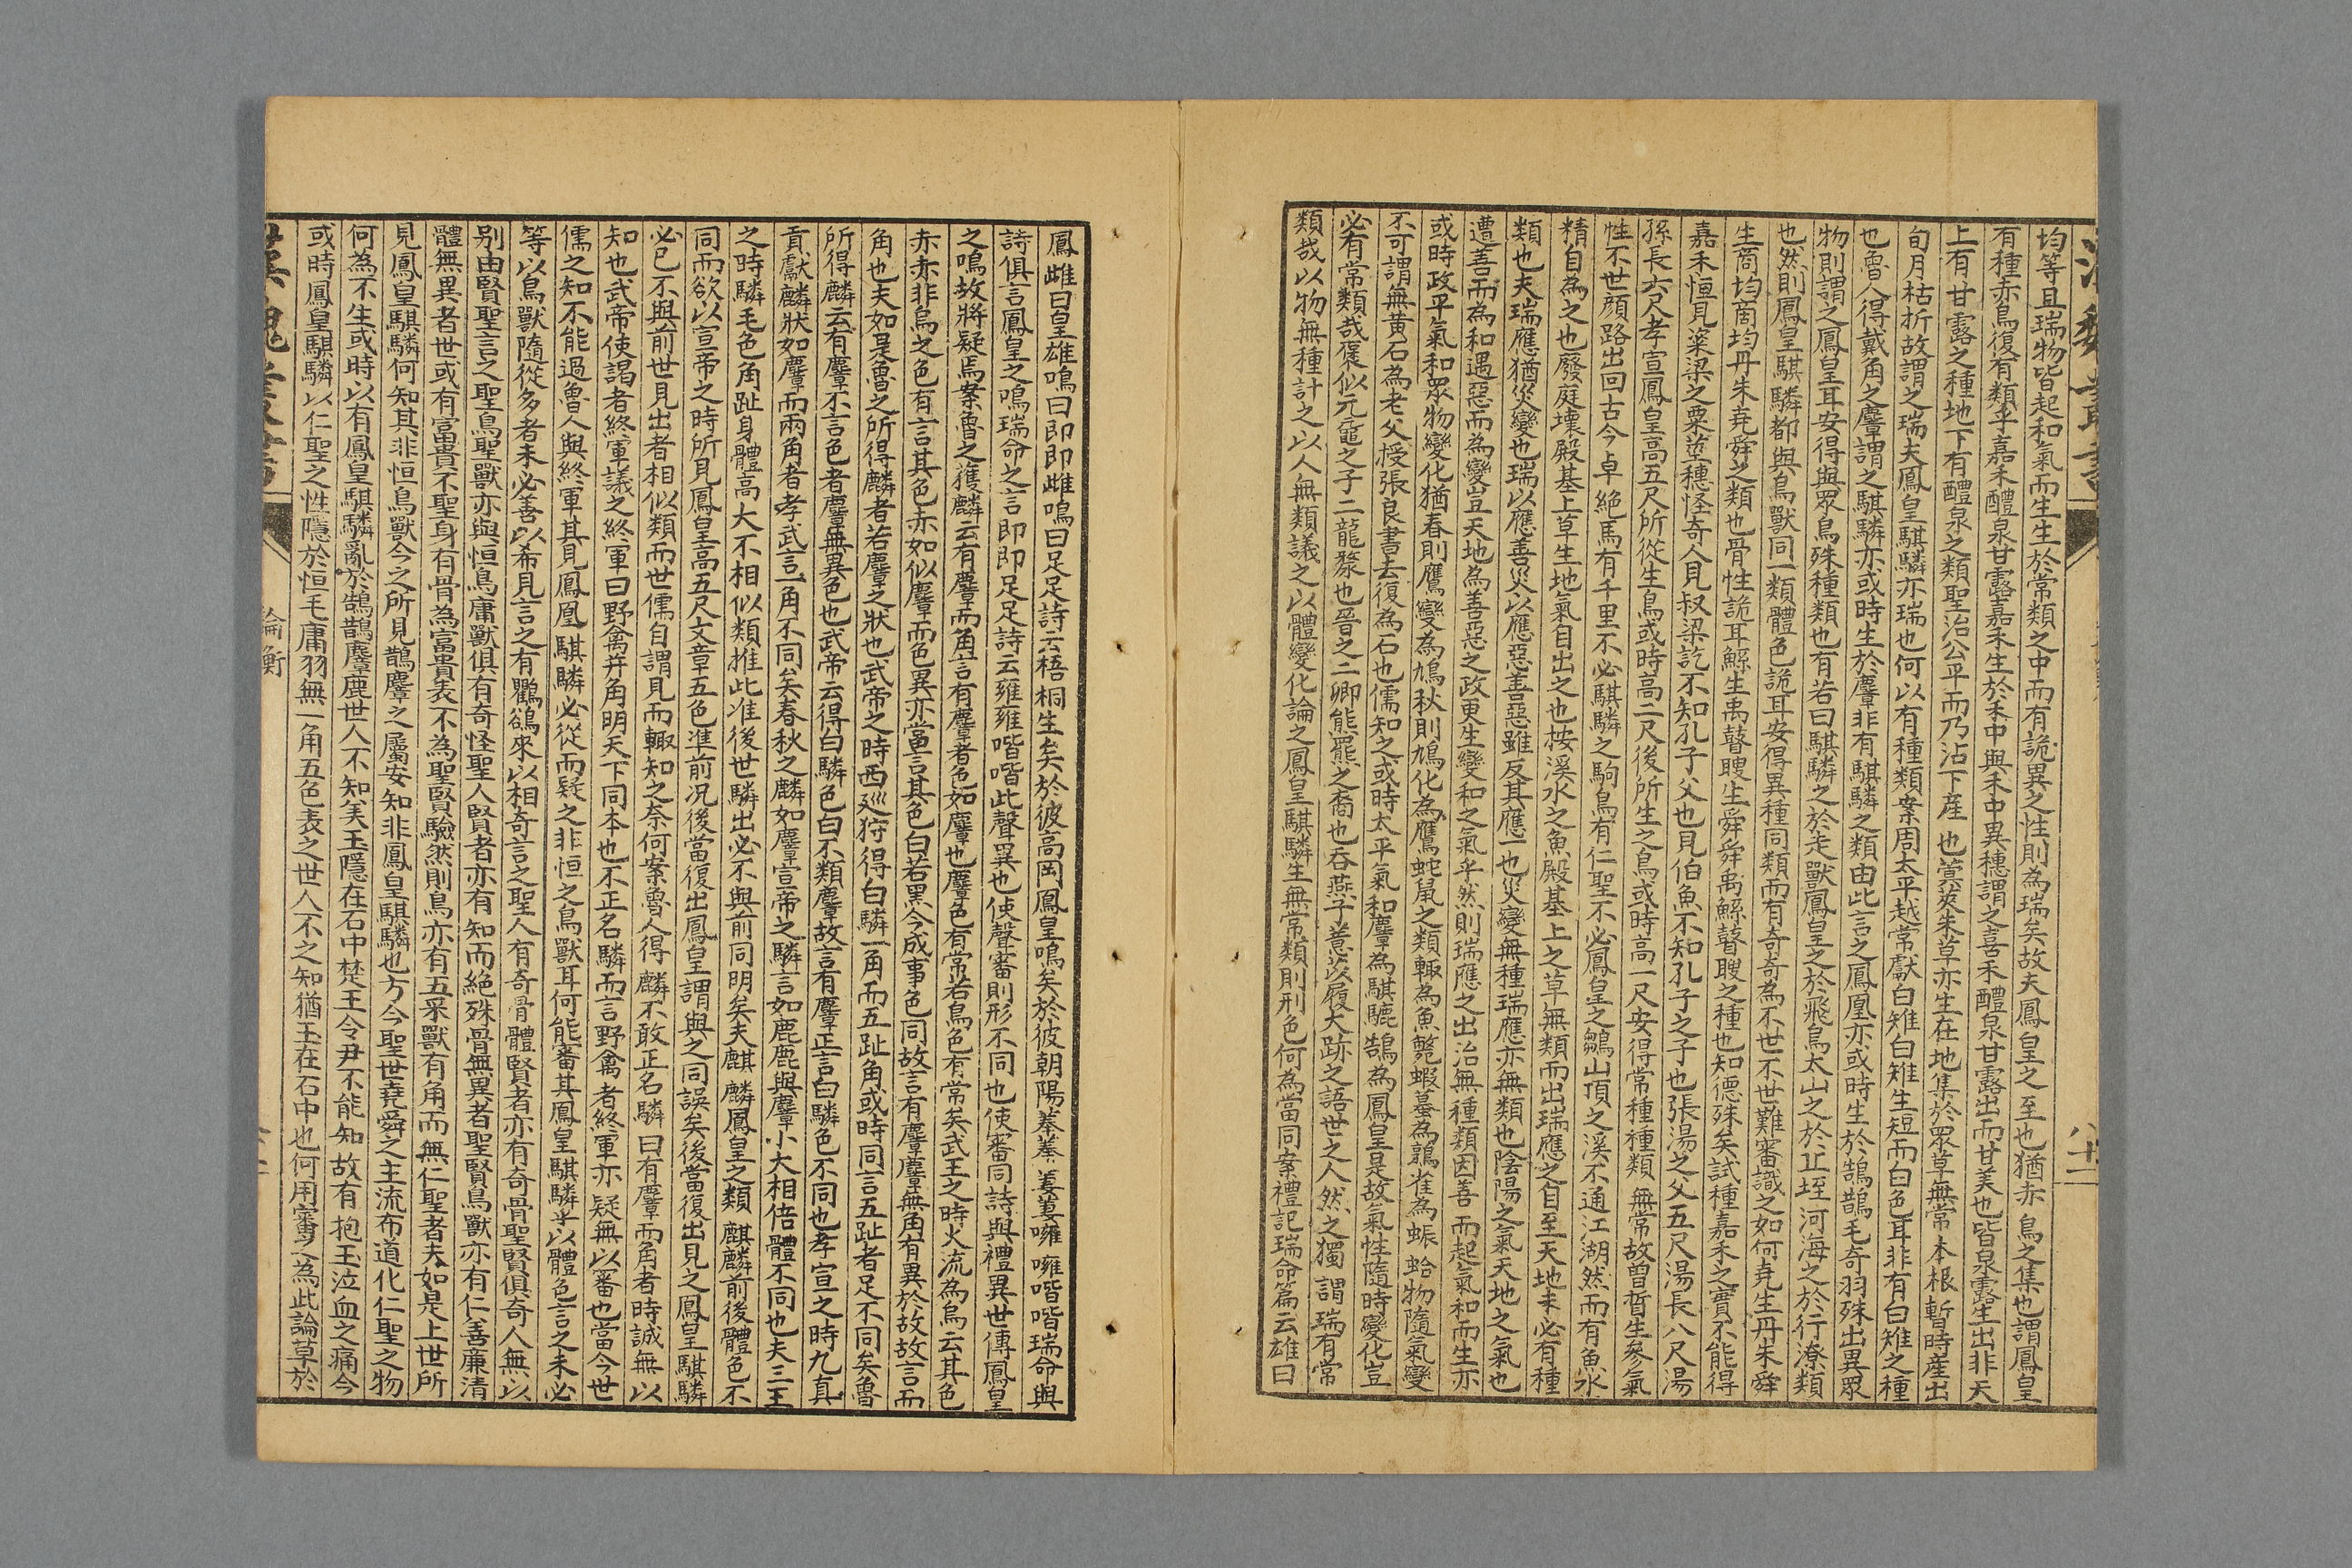 均等且瑞物皆起和氣而生生於常類之中而有詭異之性則為瑞矣故夫鳳皇之至也猶赤烏之集也謂鳳皇
有種赤烏復有類乎嘉禾醴泉甘露嘉禾生於禾中與禾中異穗謂之嘉禾醴泉甘露出而甘美也皆泉露生出非天
上有甘露之種地下有醴泉之類聖治公平而乃沾下產也蓂莢朱草亦生在地集於眾草無常本根暫時產出
旬月枯折故謂之瑞夫鳳皇騏驎亦瑞也何以有種類案周太平越常獻白雉白雉生短而白色耳非有白雉之種
也魯人得戴角之麞謂之騏驎亦或時生於麞非有騏驎之類由此言之鳳凰亦或時生於鵠鵲毛奇羽殊出異眾
物則謂之鳳皇耳安得與眾鳥殊種類也有若曰騏驎之於走獸鳳皇之於飛鳥太山之於丘垤河海之於行潦類
也然則鳳皇騏驎都與鳥獸同一類體色詭耳安得異種同類而有奇奇為不世不世難審識之如何堯生丹朱舜
生商均商均丹朱堯舜之類也骨性詭耳鯀生禹瞽瞍生舜舜禹鯀瞽瞍之種也知德殊矣試種嘉禾之實不能得
嘉禾恒見粢梁之粟莖穗怪奇人見叔梁訖不知孔子父也見伯魚不知孔子之子也張湯之父五尺湯長八尺湯
孫長六尺孝宣鳳皇高五尺所從生鳥或時高二尺後所生之鳥或時高一尺安得常種種類無常故曾晳生參氣
性不世顏路出回古今卓絕馬有千里不必騏驎之駒鳥有仁聖不必鳳皇之鶵山頂之溪不通江湖然而有魚水
精自為之也廢庭壞殿基上草生地氣自出之也按溪水之魚殿基上之草無類而出瑞應之自至天地未必有種
類也夫瑞應猶災變也瑞以應善災以應惡善惡雖反其應一也災變無種瑞應亦無類也陰陽之氣天地之氣也
遭善而為和遇惡而為變豈天地為善惡之政更生變和之氣乎然則瑞應之出治無種類因善而起氣和而生亦
或時政平氣和眾物變化猶春則鷹變為鳩秋則鳩化為鷹蛇鼠之類輒為魚鼈蝦蟇為鶉雀為蜄蛤物隨氣變
不可謂無黃石為老父授張良書去復為石也儒知之或時太平氣和麞為騏驎鵠為鳳皇是故氣性隨時變化豈
必有常類哉褒姒元黿之子二龍漦也晉之二卿熊羆之裔也吞燕子薏苡履大跡之語世之人然之獨謂瑞有常
類哉以物無種計之以人無類議之以體變化論之鳳皇騏驎生無常類則刑色何為當同案禮記瑞命篇云雄曰
鳳雌曰皇雄鳴曰即即雌鳴曰足足詩云梧桐生矣於彼高岡鳳皇鳴矣於彼朝陽菶菶萋萋噰噰喈喈瑞命與
詩俱言鳳皇之鳴瑞命之言即即足足詩云雍雍喈喈此聲異也使聲審則形不同也使審同詩與禮異世傳鳳皇
之鳴故將疑焉案魯之獲麟云有麞而角言有麞者色如麞也麞色有常若鳥色有常矣武王之時火流為烏云其色
赤赤非烏之色有言其色赤如似麞而色異亦當言其色白若黑今成事色同故言有麞麞無角有異於故故言而
角也夫如是魯之所得麟者若麞之狀也武帝之時西巡狩得白驎一角而五趾角或時同言五趾者足不同矣魯
所得麟云有麞不言色者麞無異色也武帝云得白驎色白不類麞故言有麞正言白驎色不同也孝宣之時九真
貢獻麟狀如麞而兩角者孝武言一角不同矣春秋之麟如麞宣帝之驎言如鹿鹿與麞小大相倍體不同也夫三王
之時驎毛色角趾身體高大不相似類推此准後世驎出必不與前同明矣夫麒麟鳳皇之類麒麟前後體色不
同而欲以宣帝之時所見鳳皇高五尺文章五色準前况後當復出鳳皇謂與之同誤矣後當復出見之鳳皇騏驎
必已不與前世見出者相似類而世儒自謂見而輒知之奈何案魯人得麟不敢正名驎曰有麞而角者時誠無以
知也武帝使謁者終軍議之終軍曰野禽并角明天下同本也不正名驎而言野禽者終軍亦疑無以審也當今世
儒之知不能過魯人與終軍其見鳳凰騏驎必從而疑之非恒之鳥獸耳何能審其鳳皇騏驎乎以體色言之未必
等以鳥獸隨從多者未必善以希見言之有鸜鵒來以相奇言之聖人有奇骨體賢者亦有奇骨聖賢俱奇人無以
别由賢聖言之聖鳥聖獸亦與恒鳥庸獸俱有奇怪聖人賢者亦有知而絕殊骨無異者聖賢鳥獸亦有仁善廉清
體無異者世或有富貴不聖身有骨為富貴表不為聖賢驗然則鳥亦有五采獸有角而無仁聖者夫如是上世所
見鳳皇騏驎何知其非恒鳥獸今之所見鵲麞之屬安知非鳳皇騏驎也方今聖世堯舜之主流布道化仁聖之物
何為不生或時以有鳳皇騏驎亂於鵠鵲麞鹿世人不知美玉隱在石中楚王令尹不能知故有抱玉泣血之痛今
或時鳳皇騏驎以仁聖之性隱於恒毛庸羽無一角五色表之世人不之知猶玉在石中也何用審之為此論草於
論衡